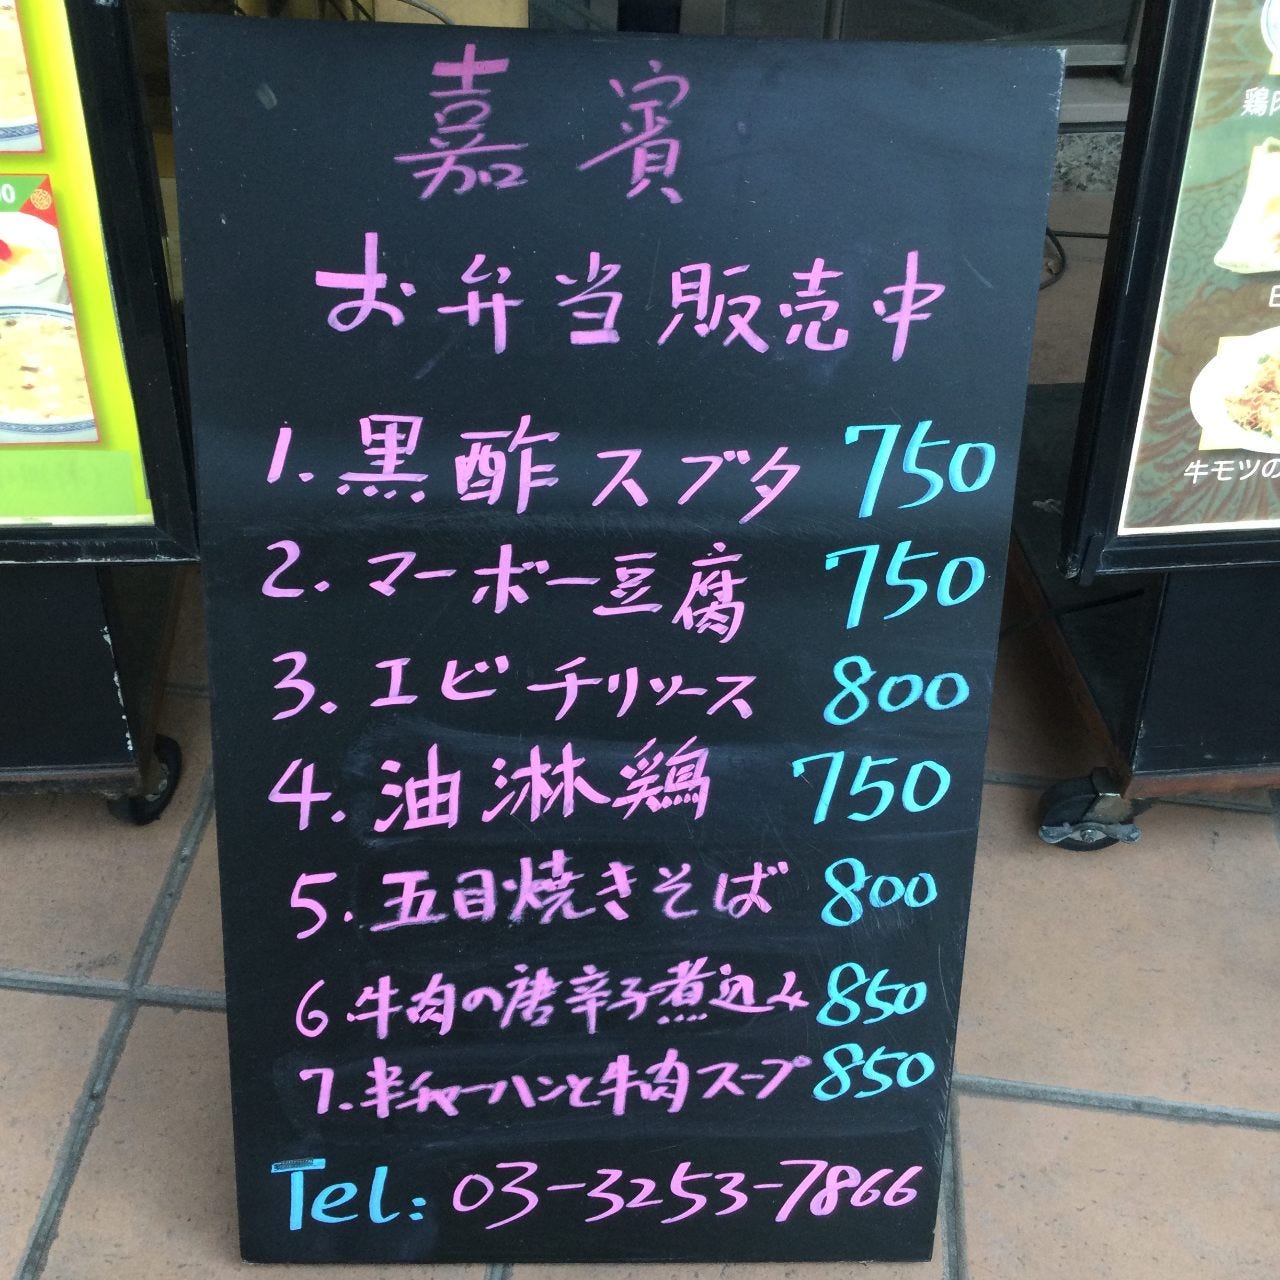 嘉賓
お弁当販売中
1. 黒酢スブタ 750
2. マーボー豆腐 750
3. エビチリソース 800
4. 油淋鶏 750
5. 五目焼きそば 800
6. 牛肉の唐辛子煮込み 850
7. 半チャーハンと牛肉スープ 850
Tel: 03-3253-7866
鶏肉
牛モツの